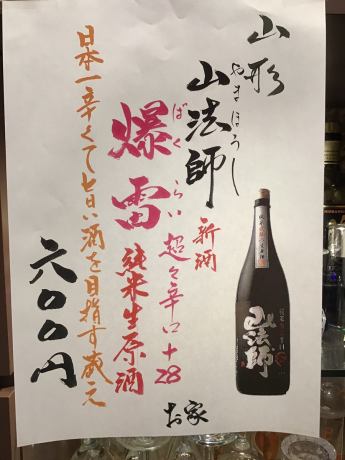 山形
やまほうし
山法師
ばくらい
爆雷
新酒
超々辛口+28
純米生原酒
日本一辛くて旨い酒を目指す蔵元
六〇〇円
お家
山法師